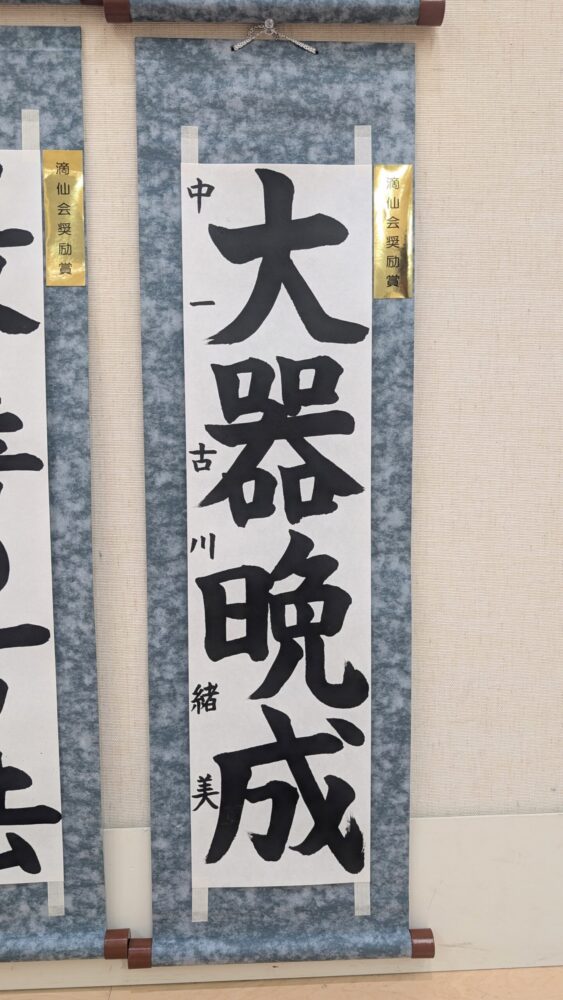 滴仙会奨励賞
大器晩成
中一 古川緒美
滴仙会奨励賞